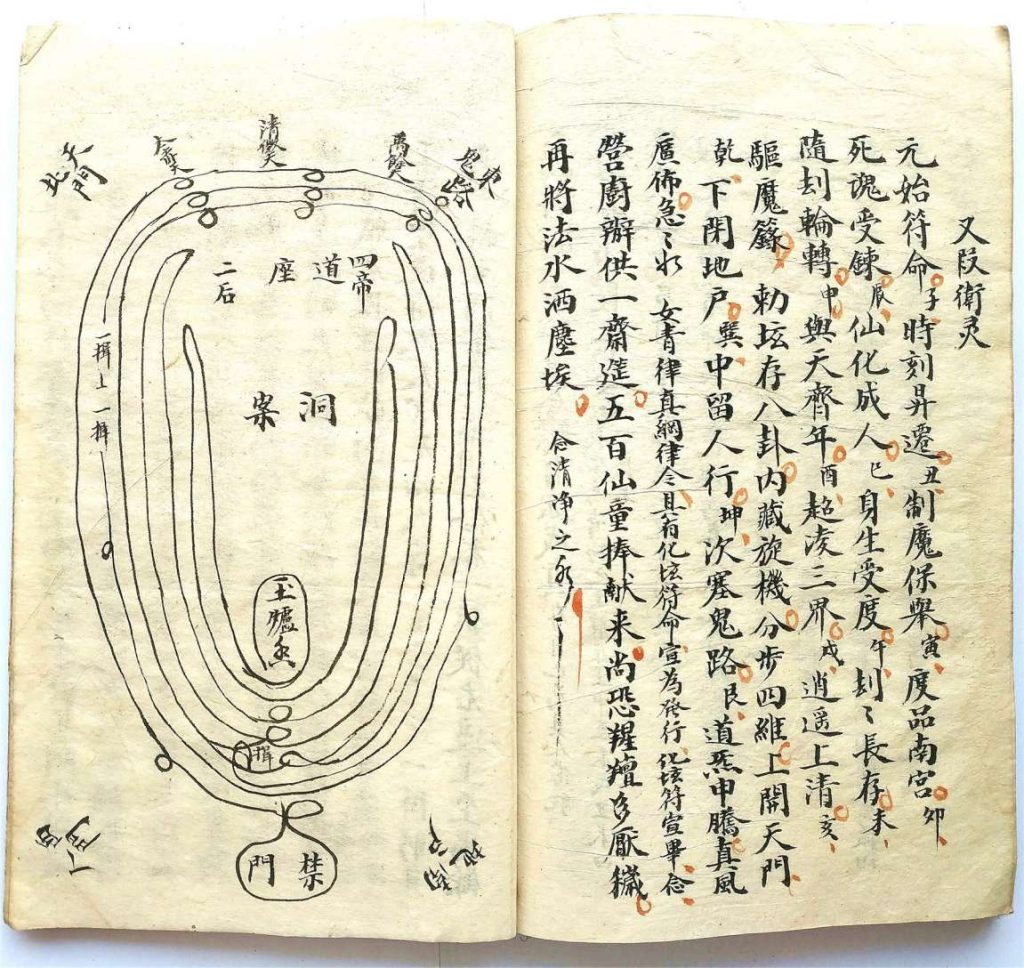 又段衛灵
元始符命子時刻昇遷丑制魔保舉寅度品南宮卯
死魂受鍊辰仙化成人巳身生受度午刦〻長存未
隨刦輪轉申與天齊年酉超凌三界戌逍遥上清亥
驅魔籙 勅坛存八卦内藏旋機分步四維上開天門
乾下閉地户巽中留人行坤次塞鬼路艮道炁申騰真風
廣佈急〻水 女青律真綱律令具有化坛符命宣為發行化坛符宣畢念
營厨辦供一齋筵五百仙童捧献来尚恐羶多厭穢
再將法水洒塵埃 念清净之水
東
鬼路
禹餘天
清微天
大赤天
天門
北
四帝
道
座
二后
一揖上一揖
洞
案
玉爐香
揖
禁
門
西